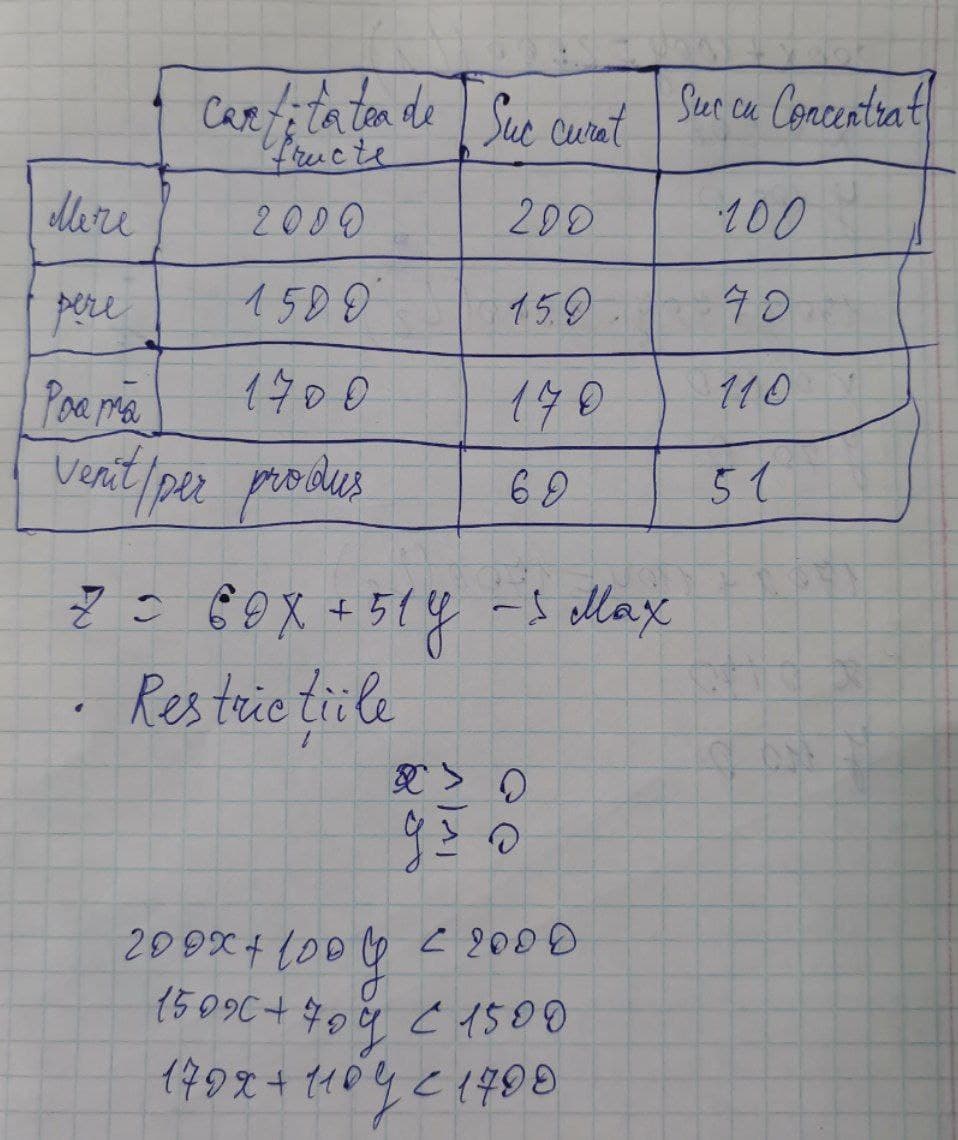 Cantitatea de fructe Suc curat Suc cu Concentrat
Mere 2000 200 100
pere 1500 150 70
Poamă 1700 170 110
Venit/per produs 60 51
Z = 60x + 51y -> Max
. Restricțiile
x ≥ 0
y ≥ 0
200x + 100y < 2000
150x + 70y < 1500
170x + 110y < 1700